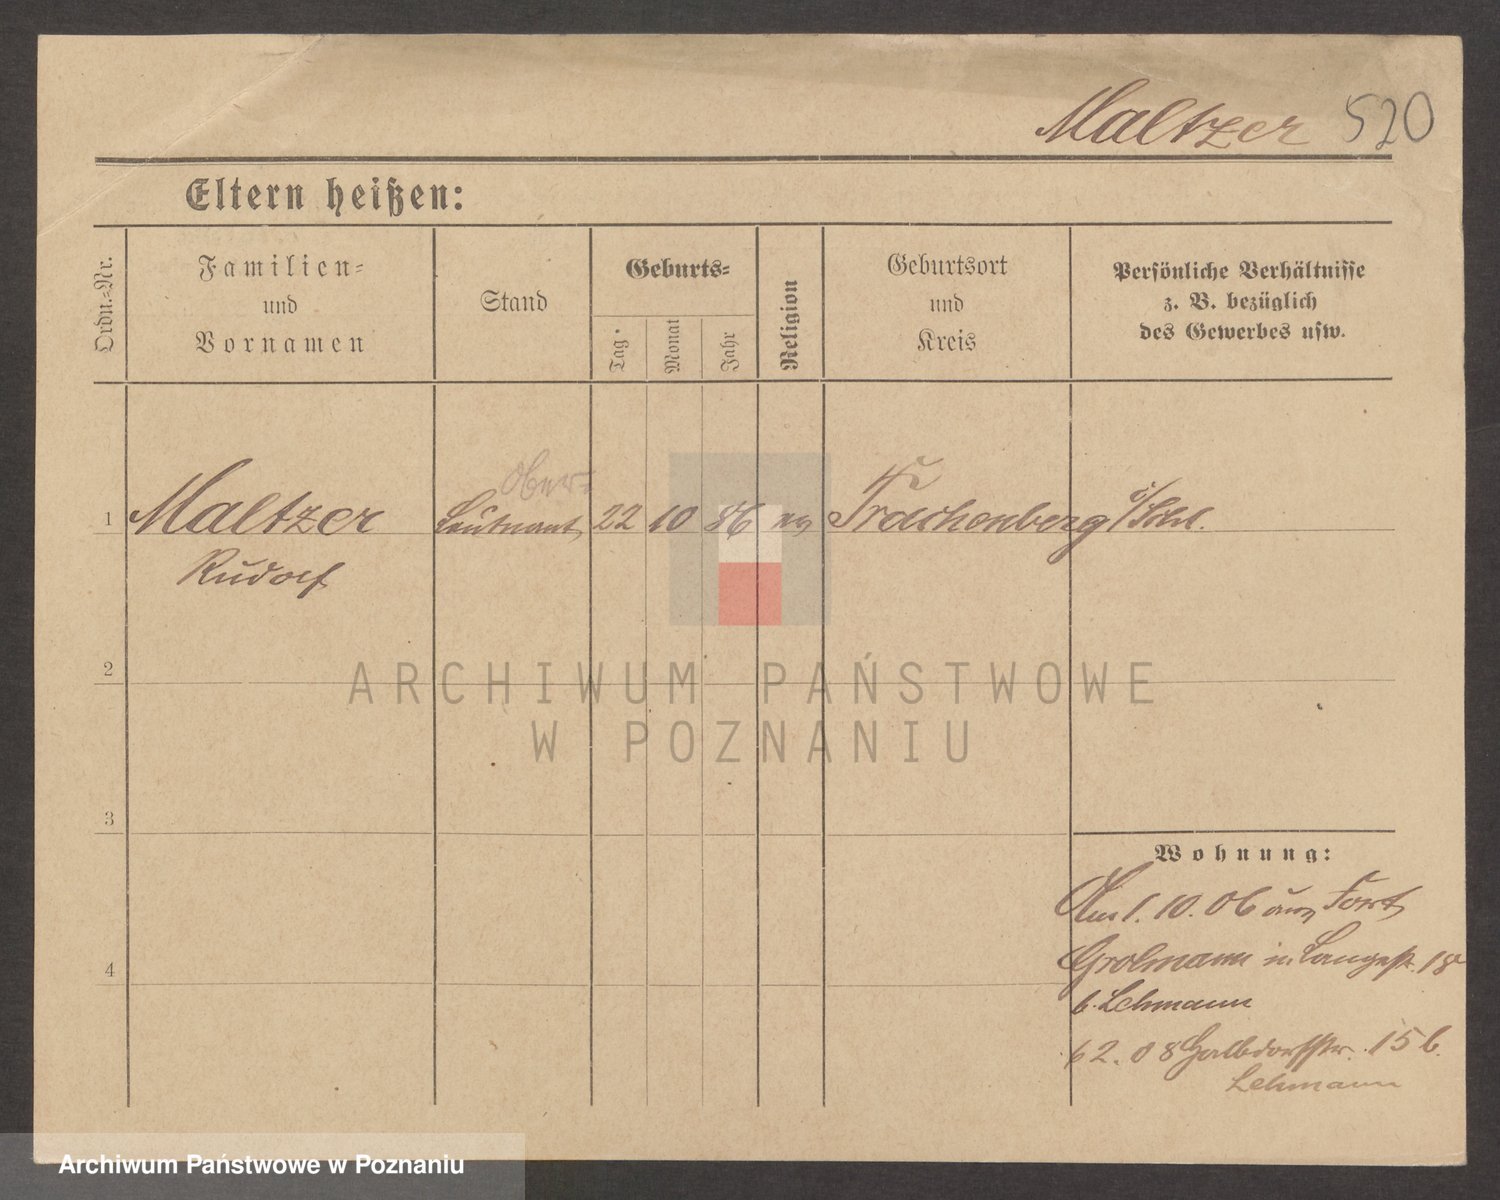 Maltzer 520
Eltern heißen:
Ordn.-Nr.
Familien-
und
Vornamen
Stand
Geburts-
Tag.
Monat
Jahr
Religion
Geburtsort
und
Kreis
Persönliche Verhältnisse
z. B. bezüglich
des Gewerbes usw.
Ober-
1 Maltzer Leutnant 22 10 86 ev Trachenberg i/Schl.
Rudolf
2
3
4
Wohnung:
Am 1. 10. 06 aus Fort
Grolmann in Langestr. 18
b. Lehmann
6 2. 08 Halbdorfstr. 15 b.
Lehmann
ARCHIWUM PAŃSTWOWE
W POZNANIU
Archiwum Państwowe w Poznaniu